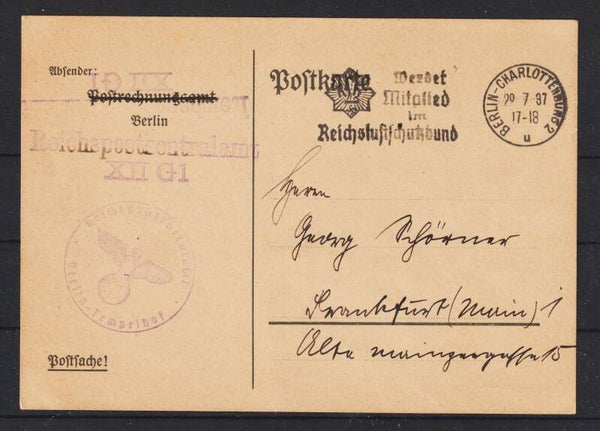 Absender:
XII G1
Postrechnungsamt
Berlin
Reichspostzentralamt
XII G1
Reichspostzentralamt
Berlin-Tempelhof
Postsache!
Postkarte
Werdet
Mitglied
im
Reichsluftschutzbund
BERLIN-CHARLOTTENBURG 2
29 7 37
17-18
u
Herrn
Georg Schörner
Frankfurt (Main) 1
Alte Mainzergasse 15